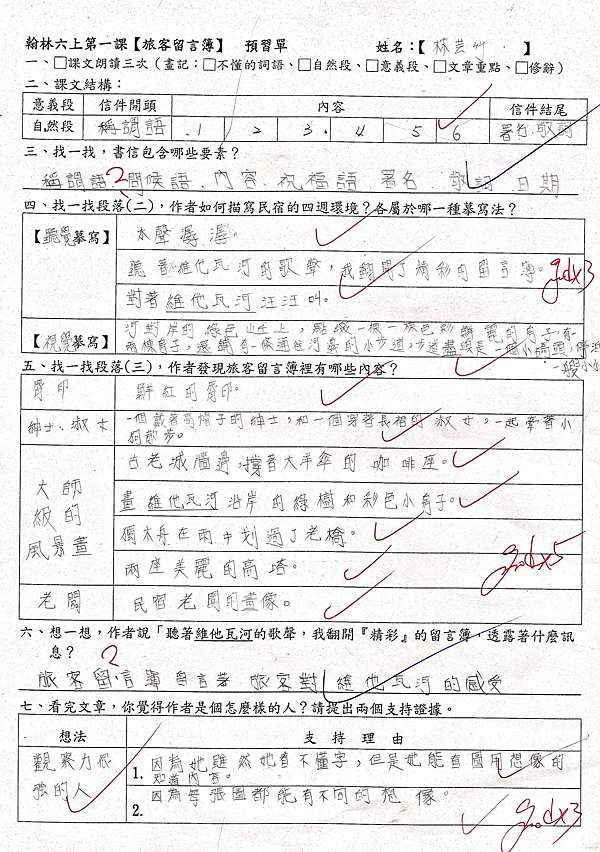 翰林六上第一課【旅客留言簿】 預習單 姓名：【林芸竹】
一、□課文朗讀三次（畫記：□不懂的詞語、□自然段、□意義段、□文章重點、□修辭）
二、課文結構：
意義段 信件開頭 內容 信件結尾
自然段 稱謂語 1 2 3 4 5 6 署名.敬詞
三、找一找，書信包含哪些要素？
稱謂語 ? 問候語、內容、祝福語 署名 敬詞 日期
四、找一找段落(二)，作者如何描寫民宿的四週環境？各屬於哪一種摹寫法？
【聽覺摹寫】 水聲潺潺。
聽著維他瓦河的歌聲，我翻開了精彩的留言簿。 good×3
對著維他瓦河汪汪叫。
【視覺摹寫】 河對岸的綠色山丘上，點綴一棟一棟色彩鮮麗的房子，有一
兩棟房子，還鋪有一條通向河邊的小步道，步道盡頭是一個小碼頭，停泊
一艘小
五、找一找段落(三)，作者發現旅客留言簿裡有哪些內容？
唇印 鮮紅的唇印。
紳士、淑女 一個戴著高帽子的紳士，和一個穿著長裙的淑女，一起牽著小
狗散步。
大師級的風景畫 古老城牆邊，撐著大洋傘的咖啡座。
畫維他瓦河沿岸的綠樹和彩色小房子。
獨木舟在雨中划過了老橋。
兩座美麗的高塔。 good×5
老闆 民宿老闆的畫像。
六、想一想，作者說「聽著維他瓦河的歌聲，我翻開『精彩』的留言簿，透露著什麼訊
息？
?
旅客留言簿留言著 旅客對維他瓦河的感受
七、看完文章，你覺得作者是個怎麼樣的人？請提出兩個支持證據。
想法 支持理由
觀察力很強的人 1. 因為她雖然她看不懂字，但是她能看圖用想像的
知道內容。
2. 因為每張圖都能有不同的想像。 good×3